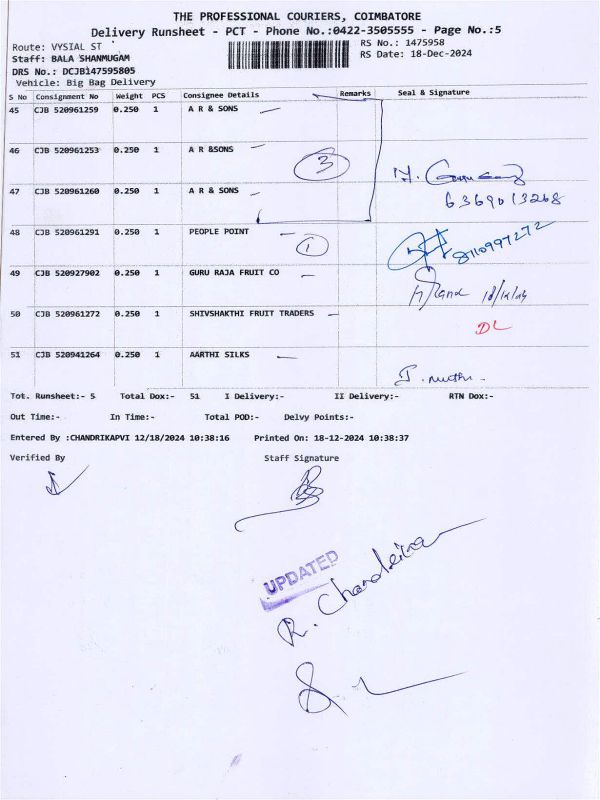 THE PROFESSIONAL COURIERS, COIMBATORE
Delivery Runsheet - PCT - Phone No.:0422-3505555 - Page No.:5
Route: VYSIAL ST
RS No.: 1475958
Staff: BALA SHANMUGAM
RS Date: 18-Dec-2024
DRS No.: DCJB147595805
Vehicle: Big Bag Delivery
S No Consignment No Weight PCS Consignee Details Remarks Seal & Signature
45 CJB 520961259 0.250 1 A R & SONS
46 CJB 520961253 0.250 1 A R &SONS
3
47 CJB 520961260 0.250 1 A R & SONS
6369013268
48 CJB 520961291 0.250 1 PEOPLE POINT
1
8110997272
49 CJB 520927902 0.250 1 GURU RAJA FRUIT CO
50 CJB 520961272 0.250 1 SHIVSHAKTHI FRUIT TRADERS
DL
51 CJB 520941264 0.250 1 AARTHI SILKS
Tot. Runsheet:- 5 Total Dox:- 51 I Delivery:- II Delivery:- RTN Dox:-
Out Time:- In Time:- Total POD:- Delvy Points:-
Entered By :CHANDRIKAPVI 12/18/2024 10:38:16 Printed On: 18-12-2024 10:38:37
Verified By Staff Signature
UPDATED
R. Chandrika